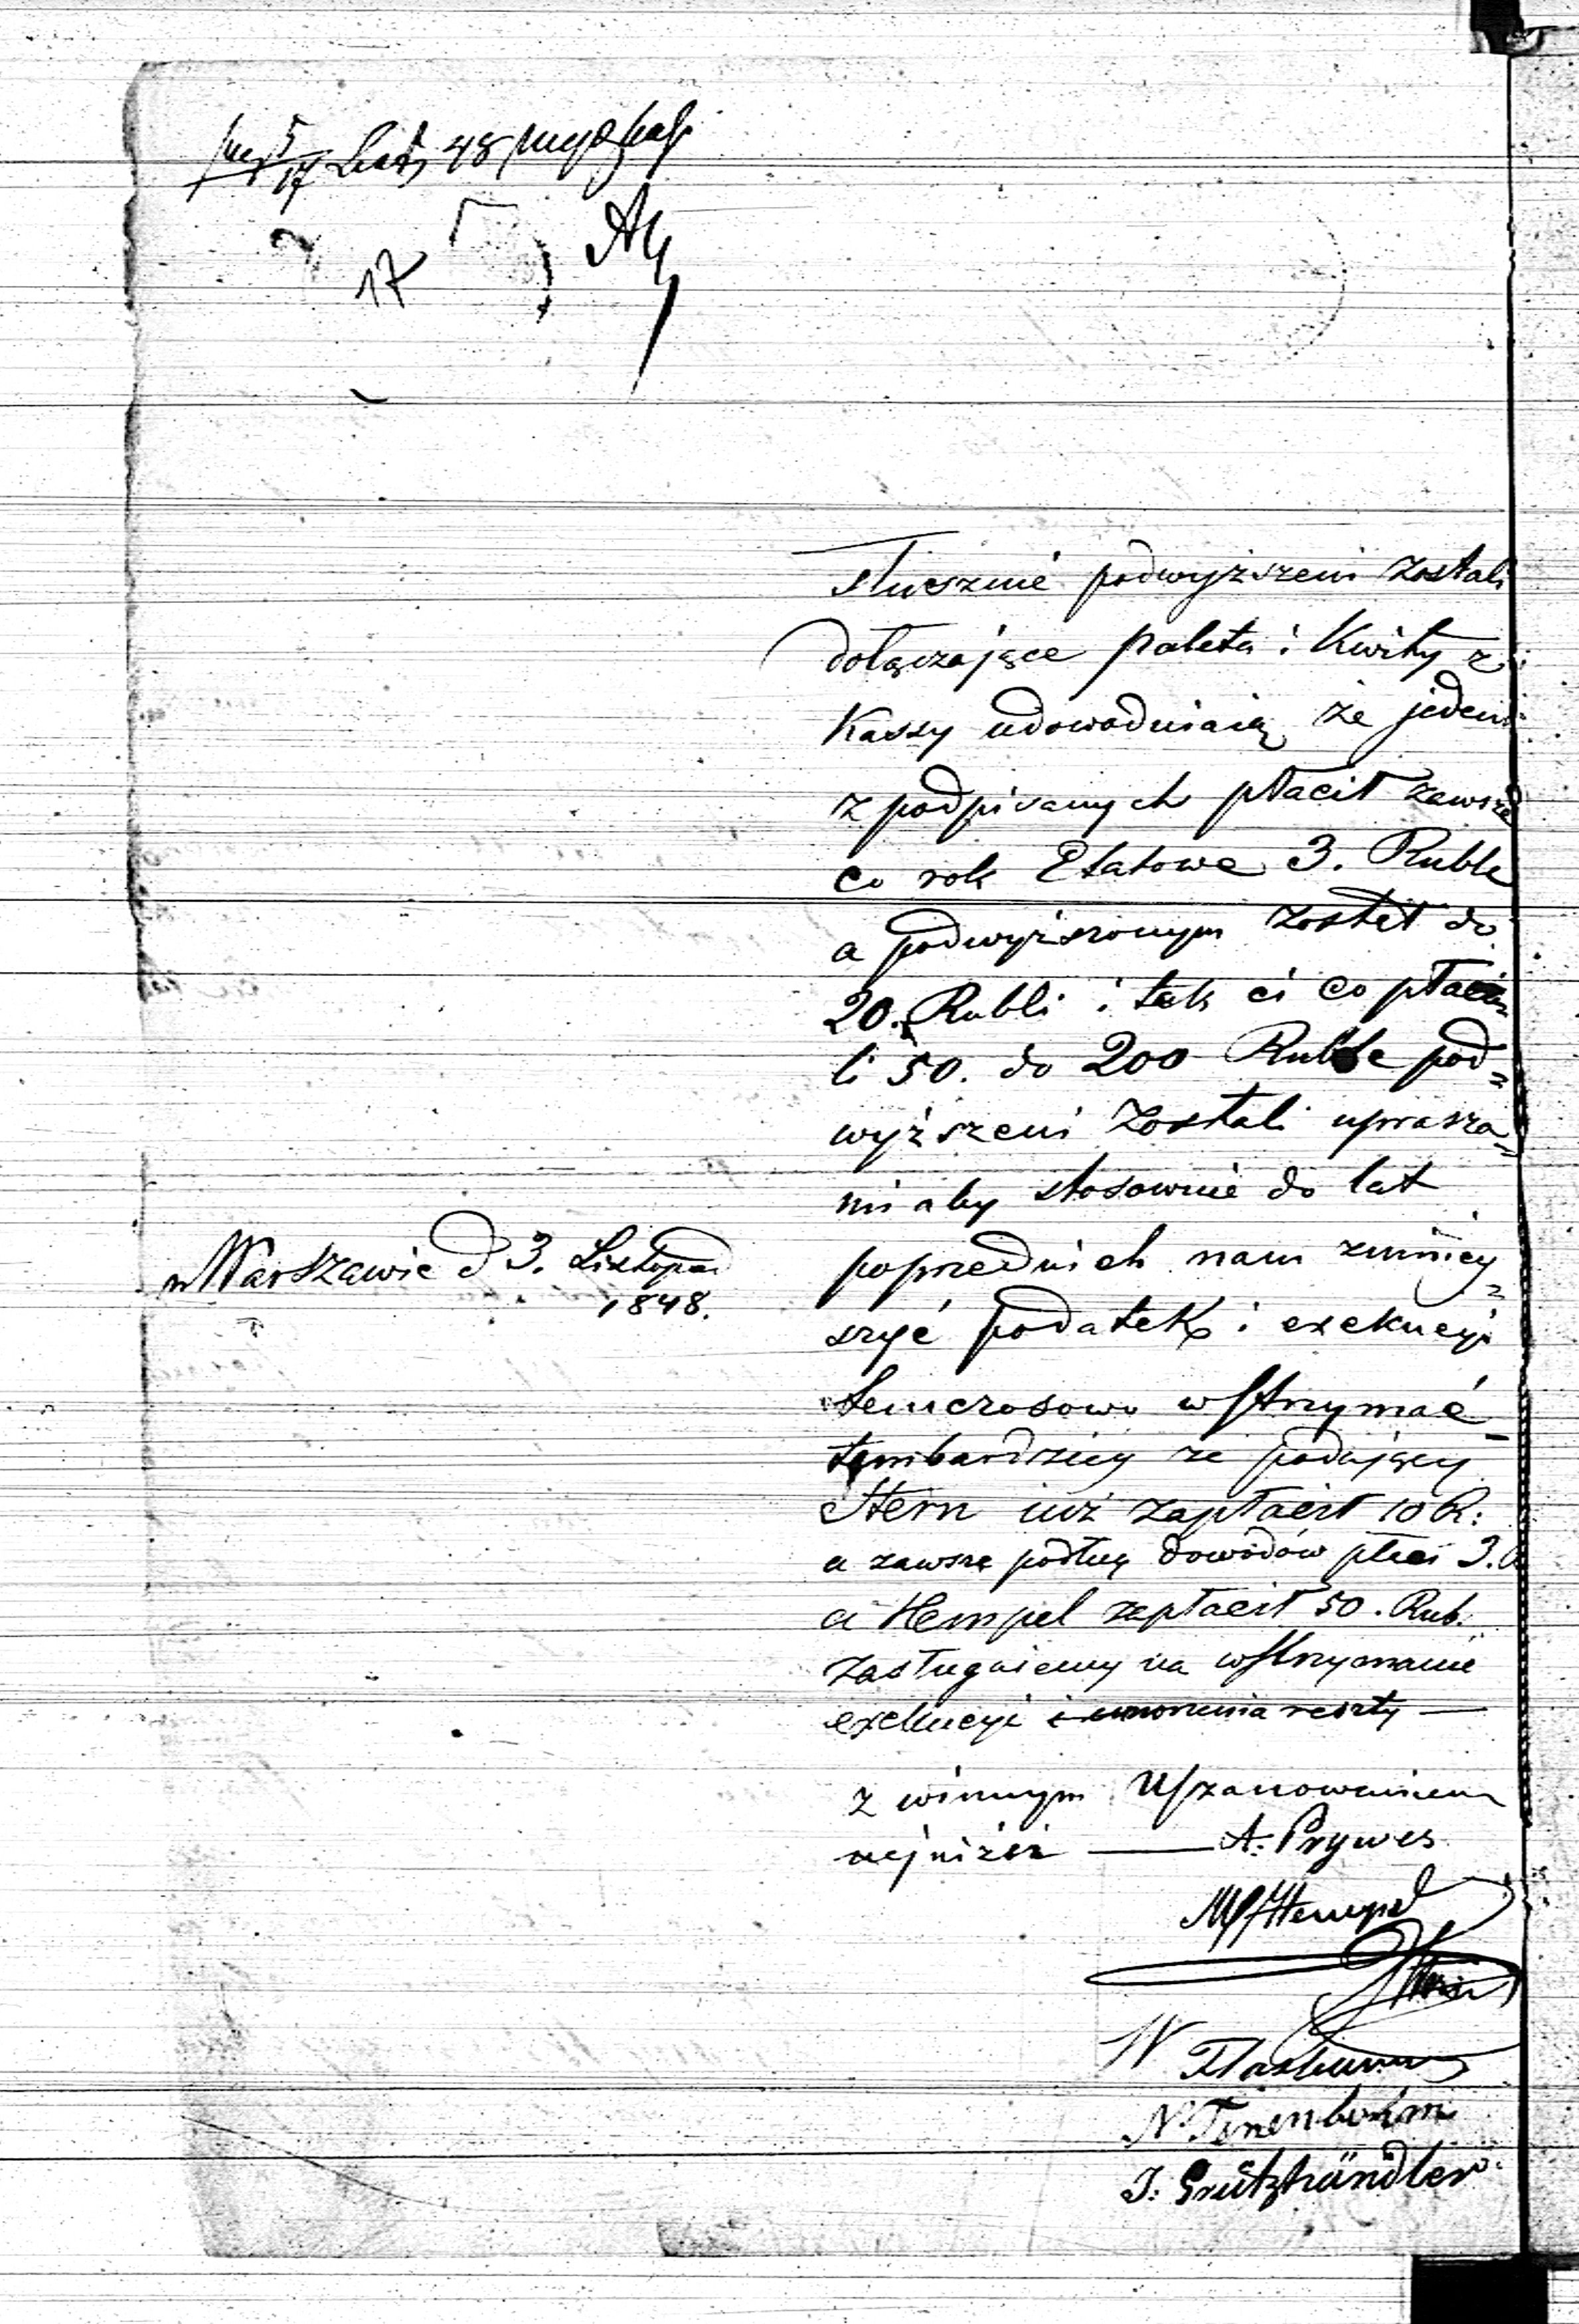 17
słusznie podwyższeni zostali
dołączające paleta i Kwity z
Kassy udowodniaią że jeden
z podpisanych płacił zawsze
co rok Etatowe 3. Ruble
a podwyższonym został do
20. Rubli i tak ci co płaci
li 50. do 200 Ruble pod=
wyższeni zostali uprasza=
mi aby stosownie do lat
poprzednich nam zmniey=
szyć podatek i exekucyi
temczosowo wstrzymać
tembardziey że podający
Stern iuż zapłacił 10 R:
a zawsze podług dowodów płaci 3.
a Hempel zapłacił 50. Rub.
zasługuiemy na wstrzymanie
exekucyi i umorzenia reszty —
w Warszawie d 3. Listopad
1848.
z winnym Uszanowaniem
najniższ — A. Prywes
Hempel
N. Tenenbohm
J: Grützhändler